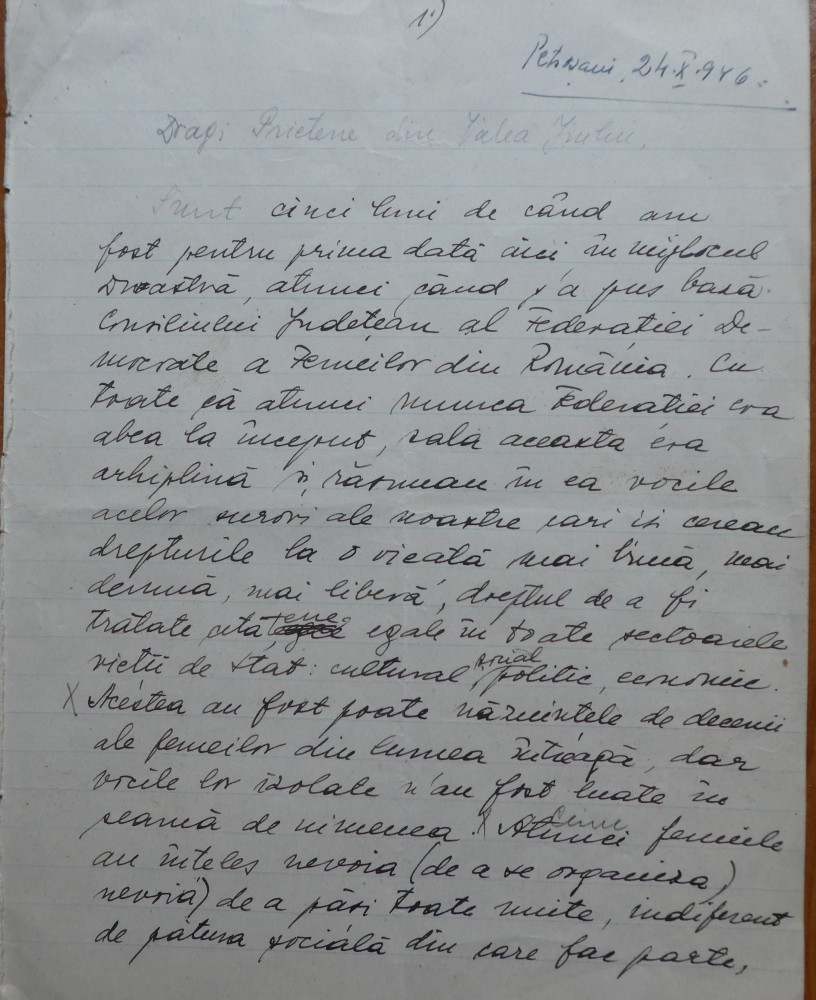 1.)
Petroșani, 24.X.946.
Dragi Prietene din Valea Jiului,
Sunt cinci luni de când am
fost pentru prima dată aici în mijlocul
Dvoastră, atunci când s'a pus bază
Consiliului Județean al Federației De-
mocrate a Femeilor din România. Cu
toate că atunci munca Federației era
abea la început, sala aceasta era
arhiplină și răsunau în ea vocile
acelor surori ale noastre cari își cereau
drepturile la o vieață mai bună, mai
demnă, mai liberă, dreptul de a fi
tratate cetățene egale în toate sectoarele
vieții de stat: cultural, social, politic, economic.
X Acestea au fost poate năzuințele de decenii
ale femeilor din lumea întreagă, dar
vocile lor izolate n'au fost luate în
seamă de nimenea. X Atunci femeile
au înteles nevoia (de a se organiza)
nevoia) de a păși toate unite, indiferent
de patura socială din care fac parte,